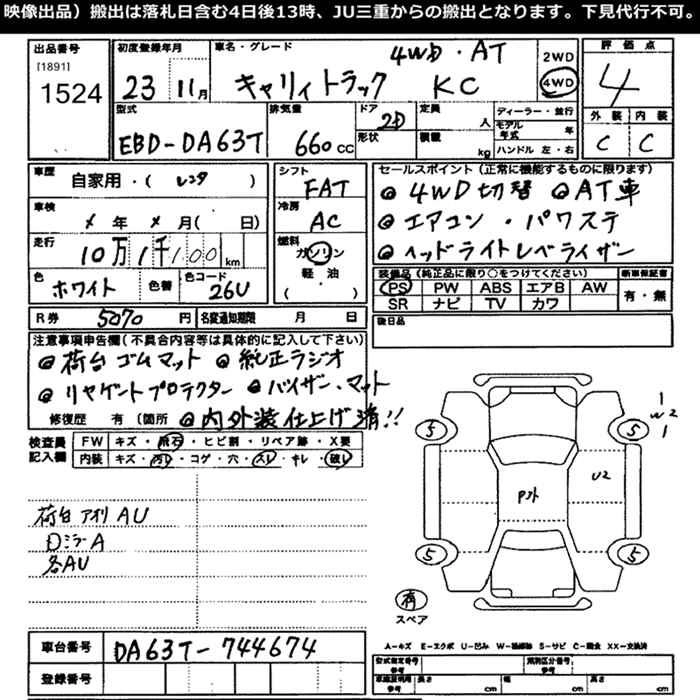 映像出品）搬出は落札日含む4日後13時、JU三重からの搬出となります。下見代行不可。
出品番号 [1891] 1524
初度登録年月 23 11月
車名・グレード キャリィトラック 4WD・AT KC
2WD 4WD
評価点 4
外装 内装 C C
型式 EBD-DA63T
排気量 660cc
ドア 2D 形状
定員 人 積載 kg
ディーラー・並行
モデル年式 年
ハンドル 左・右
車歴 自家用・( レンタ )
車検 メ年 メ月( 日)
走行 10万1千100km
色 ホワイト 色替 色コード 26U
シフト FAT
冷房 AC
燃料 ガソリン 軽・油 ( )
セールスポイント（正常に機能するものに限ります）
◎4WD切替 ◎AT車
◎エアコン・パワステ
◎ヘッドライトレベライザー
装備品（純正品に限り○をつけてください）
PS PW ABS エアB AW
SR ナビ TV カワ
新車保証書 有・無
後日品
R券 5070円 名変通知期限 月 日
注意事項申告欄（不具合内容等は具体的に記入して下さい）
◎荷台ゴムマット ◎純正ラジオ
◎リヤゲートプロテクター ◎バイザー、マット
修復歴 有（箇所 ◎内外装仕上げ済!!
検査員記入欄
FW キズ・飛石・ヒビ割・リペア跡・X要
内装 キズ・汚レ・コゲ・穴・スレ・キレ・破レ
荷台アオリAU
DミラーA
各AU
5 5 5 5
1
W2
1
U2
有 スペア
車台番号 DA63T-744674
登録番号
A-キズ E-エクボ U-凹み W-補修跡 S-サビ C-腐食 XX-交換済
型式指定番号 参考 類別区分番号 参考
車庫証明用 参考 長さ cm 幅 cm 高さ cm